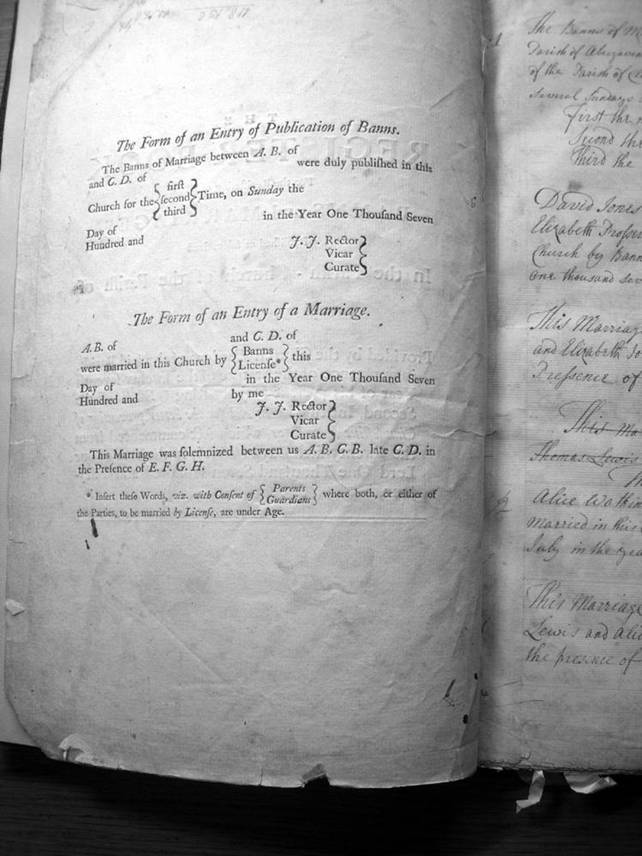 The Form of an Entry of Publication of Banns.
The Banns of Marriage between A. B. of
and C. D. of were duly publiſhed in this
Church for the { firſt ſecond third } Time, on Sunday the
Day of in the Year One Thouſand Seven
Hundred and
J. J. Rector
Vicar
Curate
The Form of an Entry of a Marriage.
A. B. of and C. D. of
were married in this Church by { Banns Licenſe* } this
Day of in the Year One Thouſand Seven
Hundred and by me
J. J. Rector
Vicar
Curate
This Marriage was ſolemnized between us A. B. C. B. late C. D. in
the Preſence of E. F. G. H.
* Inſert theſe Words, viz. with Conſent of { Parents Guardians } where both, or either of
the Parties, to be married by Licenſe, are under Age.
The Banns of
Parish of
of the Parish of
several Sundays
first
Second
Third the
David Jones
Elizabeth
Church by Bann
one thousand
This Marriage
and Elizabeth
Presence of
This
Thomas Lewis
Alice
Married in this
July in the
This Marriage
Lewis and
the presence of